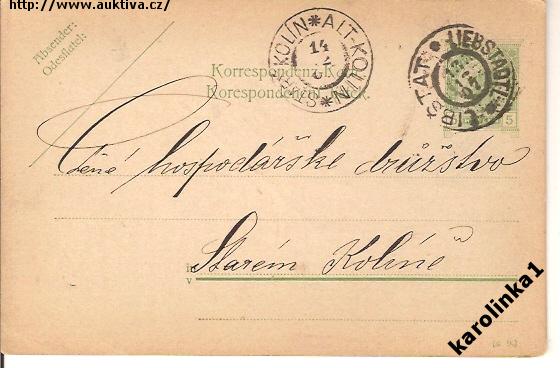 http://www.auktiva.cz/
Absender:
Odesílatel:
STARÝ KOLÍN * ALT-KOLIN *
14
LIEBSTADTL *
LIBŠTAT
Korrespondenz-Karte
Korespondenční lístek.
5
Ctěné hospodářské družstvo
in
v
Starém Kolíně
karolinka1